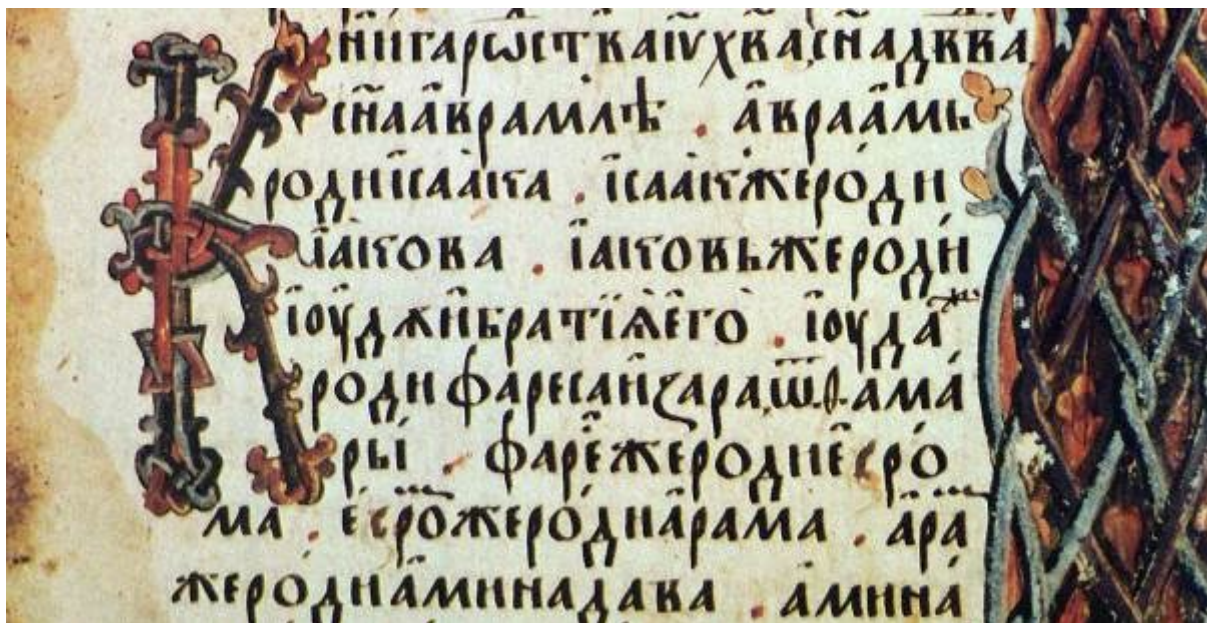 Книга рѡства іѵ х҃ва, сн҃а дв҃ва
сн҃а аврамлѣ . авраамь
роди ісаака . ісаак же роди
іакова . іаковь же роди
іоуд ѫ и братіѫ его . іоуда ж
роди фареса и зара, ѿ ѳ.ама
ры . фаре же роди есро
ма . есро же роди арама . ара
же роди аминадава . амина